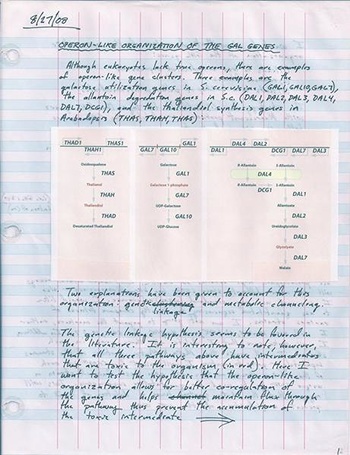 8/27/08
OPERON-LIKE ORGANIZATION OF THE GAL GENES
Although eukaryotes lack true operons, there are examples
of operon-like gene clusters. Three examples are the
galactose utilization genes in S. cerevisiae (GAL1, GAL10, GAL7),
the allantoin degradation genes in S.c. (DAL1, DAL2, DAL3, DAL4,
DAL7, DCG1), and the thalianol synthesis genes in
Arabadopsis (THAS, THAH, THAS):
THAD1 THAS1
THAH1
THAS
Thalianol
THAH
Thalianediol
THAD
Desaturated Thalianediol
GAL7 GAL10 GAL1
Galactose
GAL1
Galactose 1-phosphate
GAL7
UDP-Galactose
GAL10
UDP-Glucose
DAL1 DAL4 DAL2 DCG1 DAL7 DAL3
R-Allantoin S-Allantoin
DAL4
R-Allantoin S-Allantoin
DCG1
DAL1
Allantoin
DAL2
Ureidoglycolate
DAL3
Glyoxylate
DAL7
Malate
Two explanations have been given to account for this
organization: genetic linkage and metabolic channeling.
The genetic linkage hypothesis seems to be favored in
the literature. It is interesting to note, however,
that all three pathways above have intermediates
that are toxic to the organism (in red). Here I
want to test the hypothesis that the operon-like
organization allows for better co-regulation of
the genes and helps maintain flux through
the pathway thus prevent the accumulation of
the toxic intermediate